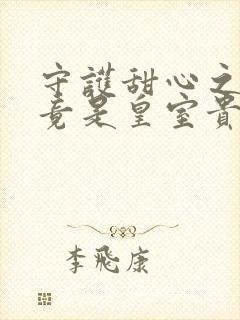 守護甜心之
竟是皇室貴
李飛康